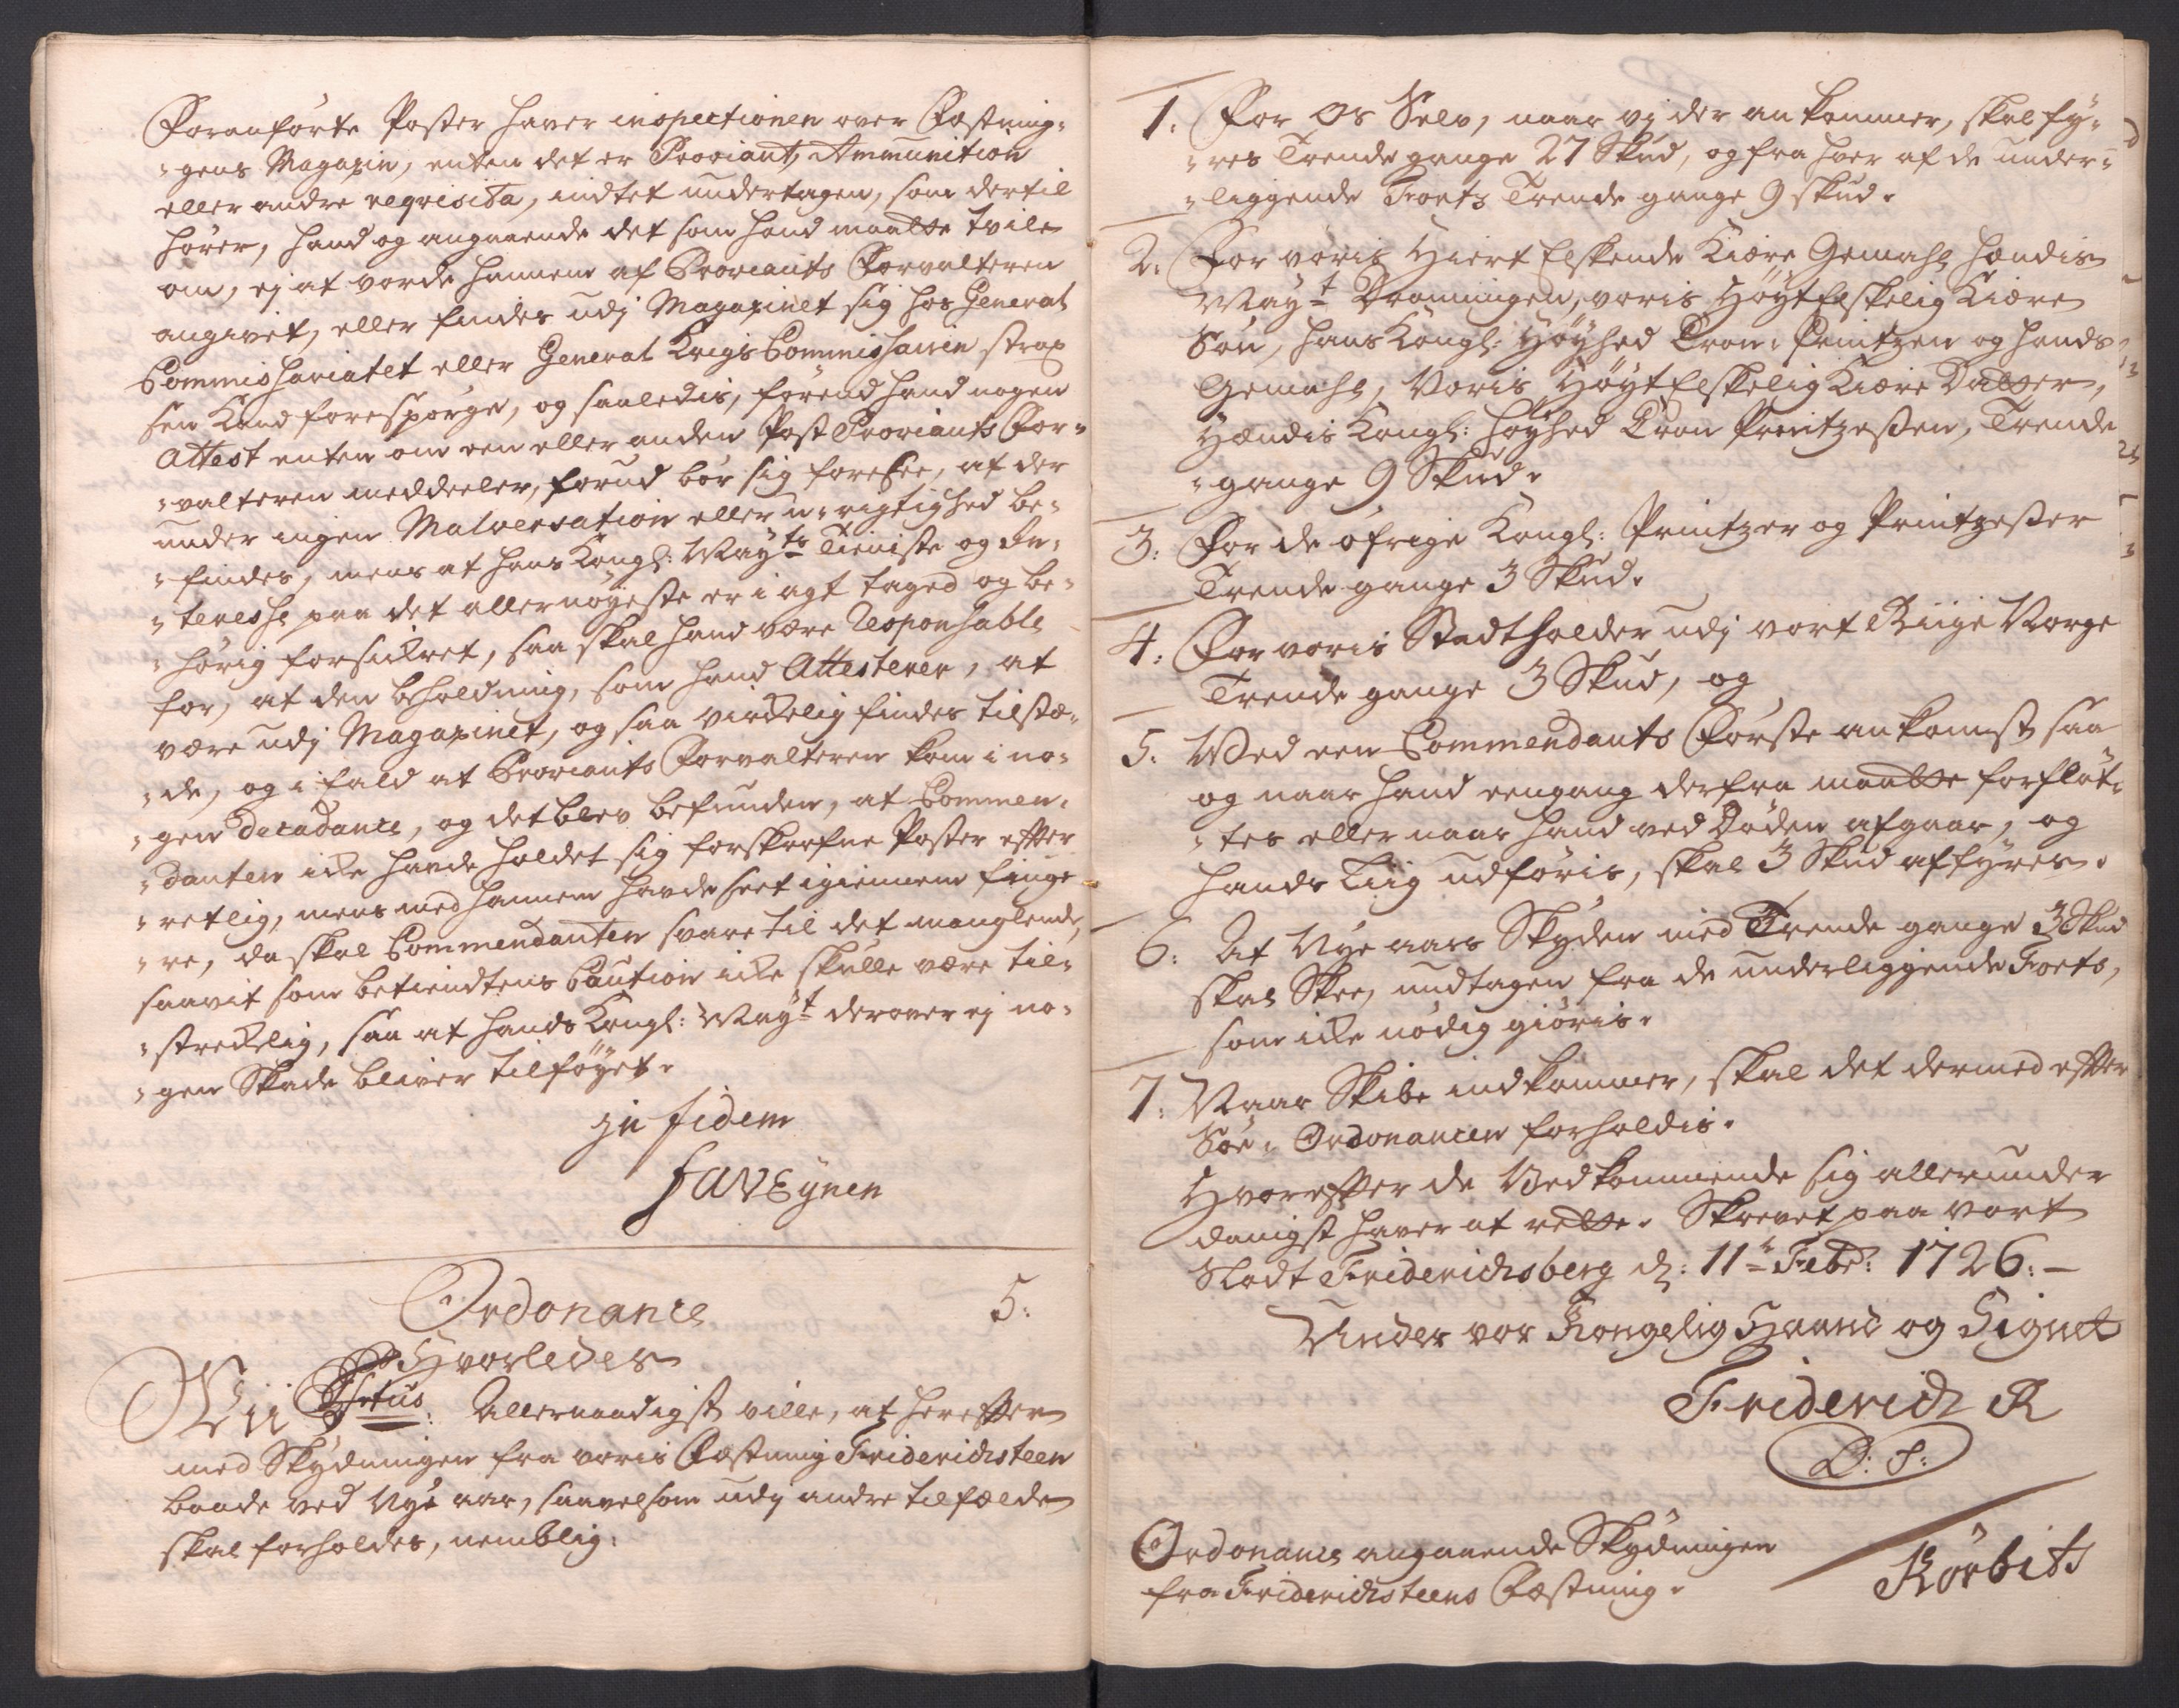 Foranförte Poster haver inspectionen over Fæstning-
-gens Magazin, enten det er Proviant, Ammunition
eller andre reqvisita, indtet undertagen, som dertil
hörer, hand og angaaende det som hand maatte tvile
om, ej at vorde hannem af Proviants Forvalteren
angivet, eller findes udj Magazinet sig hos General
Commissariatet eller General Krigs Commissairen strax
sen Kand forespörge, og saaledis, förend hand nogen
Attest enten om een eller anden Post Proviants For-
-valteren meddeeler, forud bör sig foresee, at der
under ingen Malversation eller u-rigtighed be-
-findes, mens at hans Kongl: Mayts Tieniste og In-
-teresse paa det allernöyeste er i agt taged og be-
-hörig forsikret, saa skal hand være responsable
for, at den beholdning, som hand Attesterer, at
være udj Magazinet, og saa virkelig findes tilstæ-
-de, og i fald at Proviants Forvalteren kom i no-
-gen decadance, og det blev befunden, at Commen-
-danten icke havde holdet sig forskrefne Poster effter
-retlig, mens med hannem havde seet igiennem finge-
-re, da skal Commendanten svare til det manglende,
saavit som betiendtens Caution icke skulle være til-
-streckelig, saa at hands Kongl: Mayt derover ej no-
-gen Skade bliver tilföyet.
in fidem
FAVEÿnen
Ordonance 5:
Hvorledes
Vii Ffrtus: Allernaadigst ville, at hereffter
med Skydningen fra voris Fæstning Friderichsteen
baade ved Nye aar, saavelsom udj andre tilfælde
skal forholdes, nemblig:
1: For os Selv, naar vj der ankommer, skal fy-
-res Trende gange 27 Skud, og fra hver af de under-
-liggende Forts Trende gange 9 skud.
2: For voris Hiert Elskende Kiære Gemahl hendis
Mayt Dronningen, voris Höyt Elskelig Kiære
Sön, hans Kongl: Höyhed Cron-Printzen og hands
Gemahl, Voris Höyt Elskelig Kiære Datter,
Hændis Kongl: Höyhed Cron Printzeßen, Trende
-gange 9 Skud.
3: For de öfrige Kongl: Printzer og Printzeßer
Trende gange 3 Skud.
4: For voris Stadtholder udj vort Riige Norge
Trende gange 3 Skud, og
5: Ved een Commendants Förste ankomst saa
og naar hand eengang derfra maatte forflöt-
-tes eller naar hand ved Döden afgaar, og
hands Liig udföris, skal 3 Skud affyres.
6: At Nye aars Skyden med Trende gange 3 Skud
skal Skee, undtagen fra de underliggende Forts,
som icke nödig giöris.
7: Naar Skibe indkommer, skal det dermed effter
Söe-Ordonancen forholdis.
Hvoreffter de Vedkommende sig allerunder
danigst haver at rette. Skrevet paa vort
Slodt Friderichsberg d: 11te Febr: 1726:-
Under vor Kongelig Haand og Signet
Friderich R
L: S:
Ordonance angaaende Skydningen
fra Friderichsteens Fæstning.
Körbitz